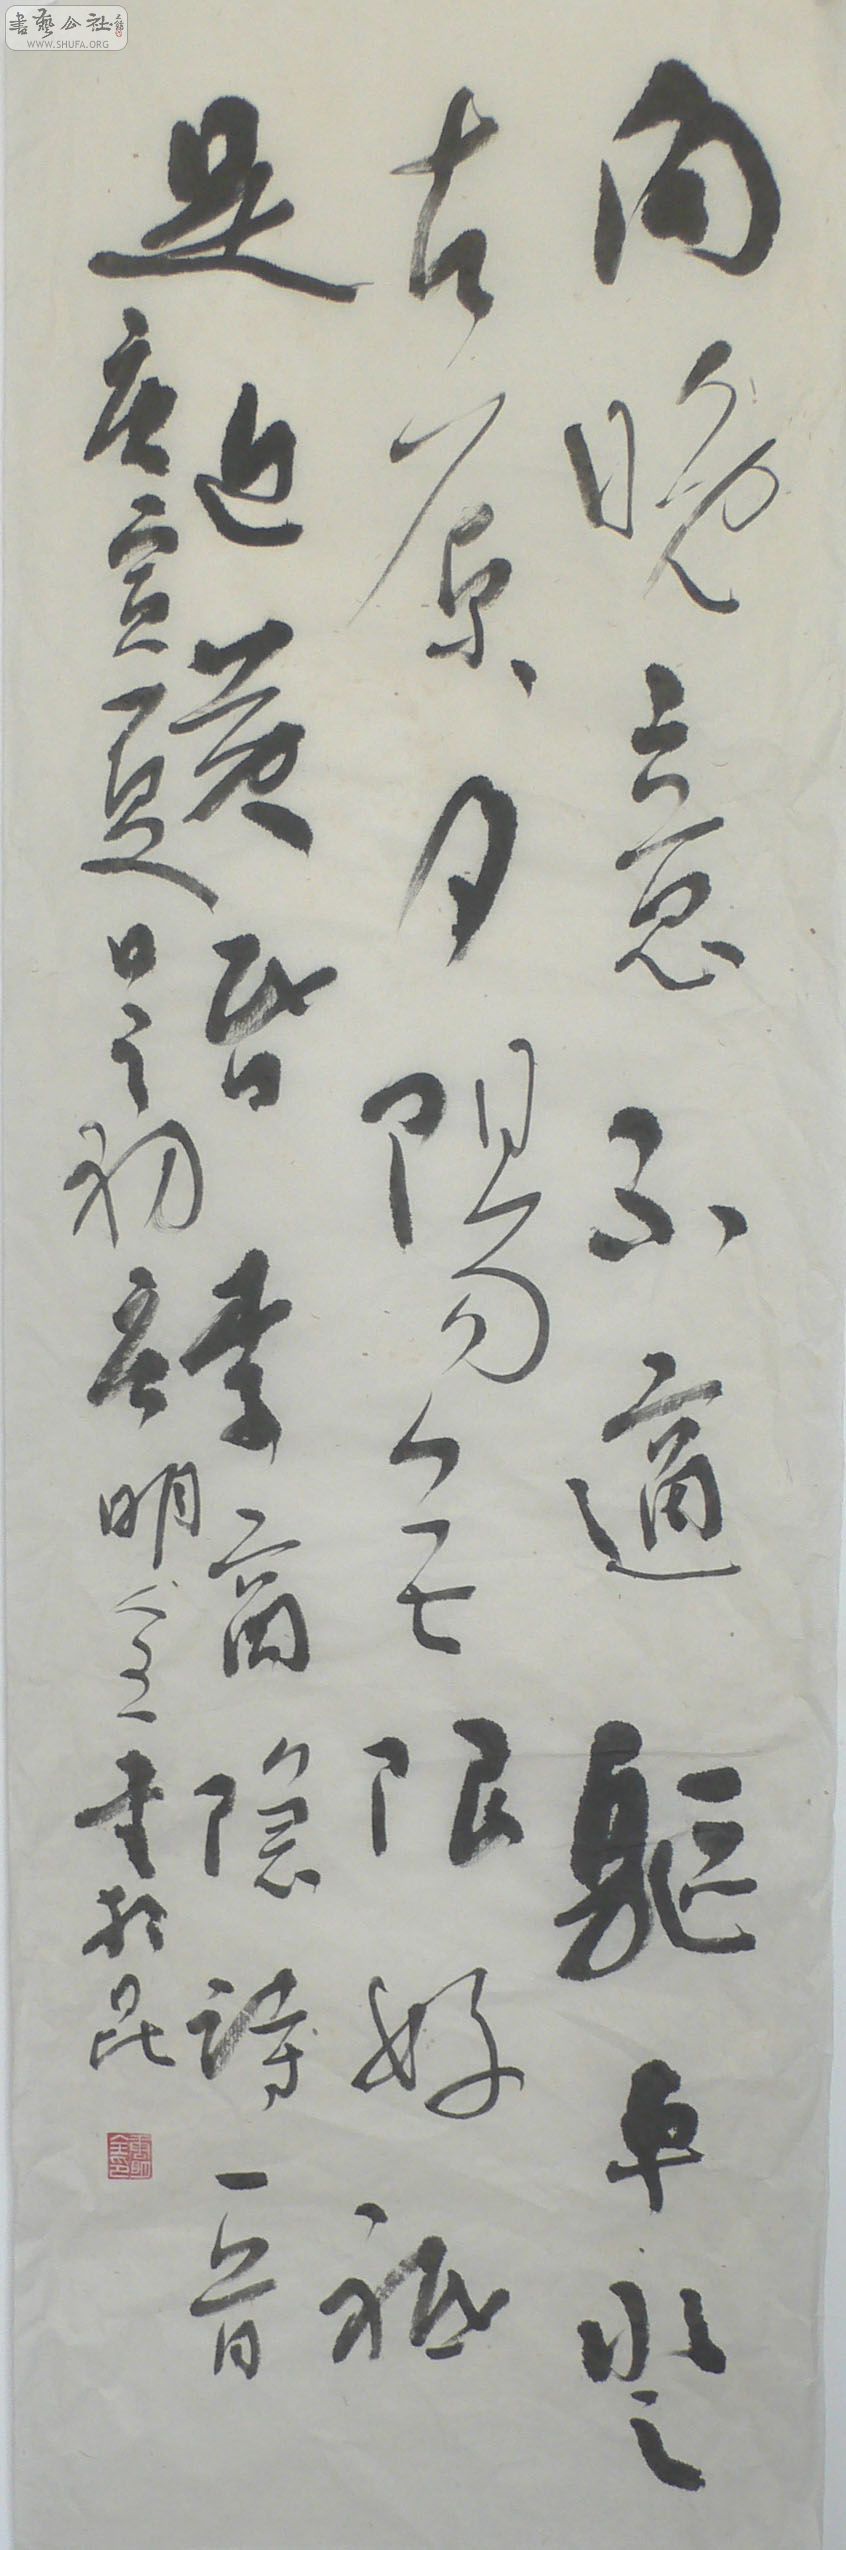 書藝公社
WWW.SHUFA.ORG
向晚意不適驅車登
古原夕陽無限好祗
是近黃昏李商隱詩一首
庚寅夏日之初明全書於昆